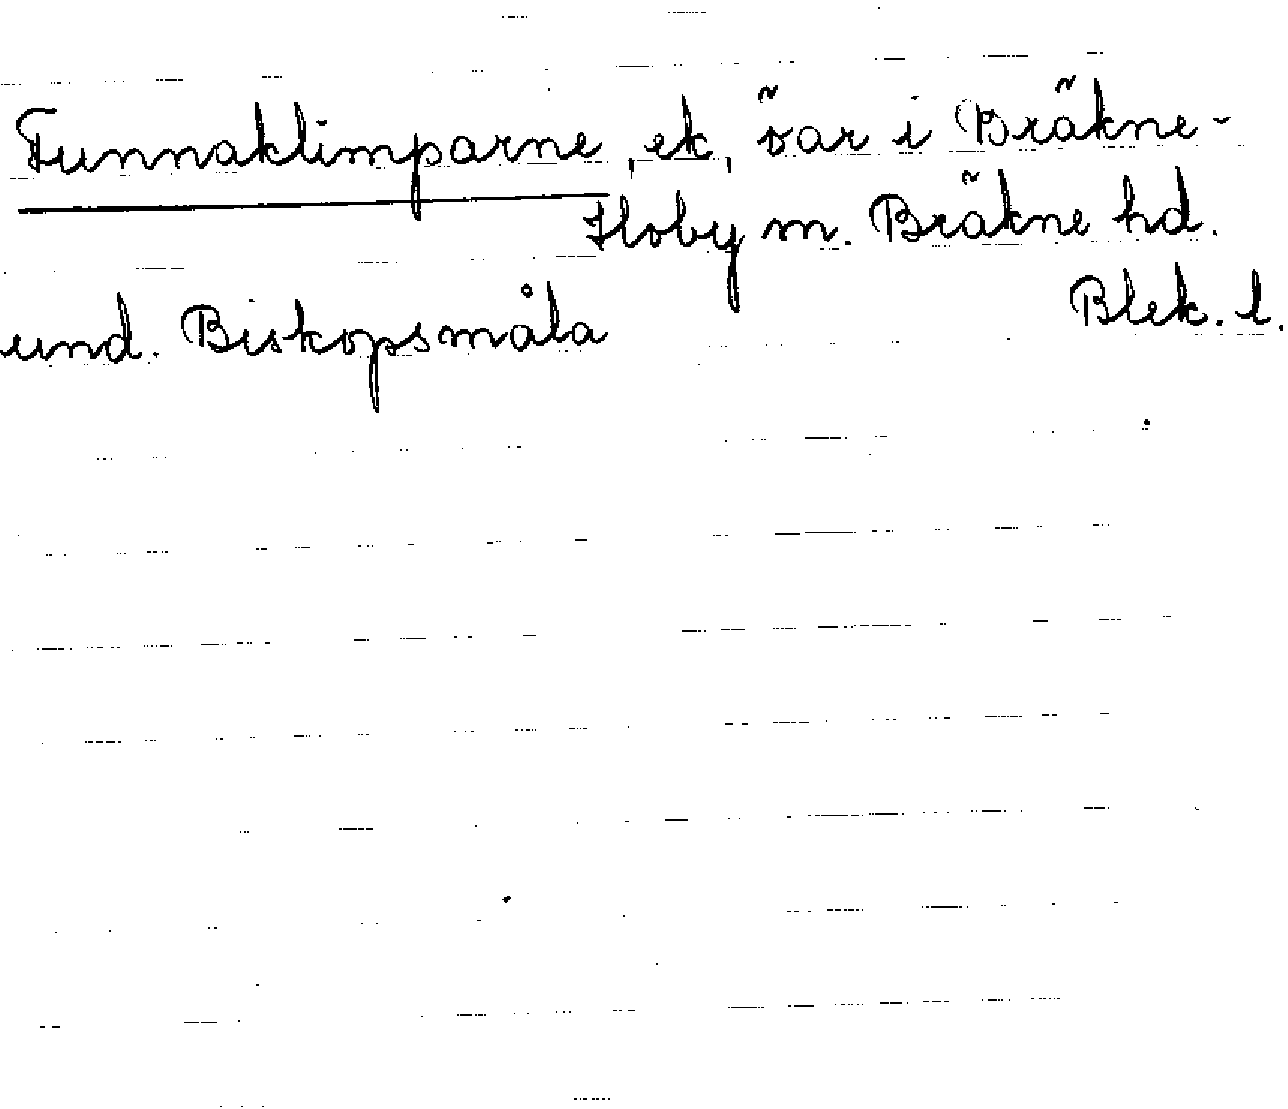 Tunnaklimparne, ek, öar i Bräkne-
Hoby m. Bräkne hd.
Blek. l.
und. Biskopsmåla